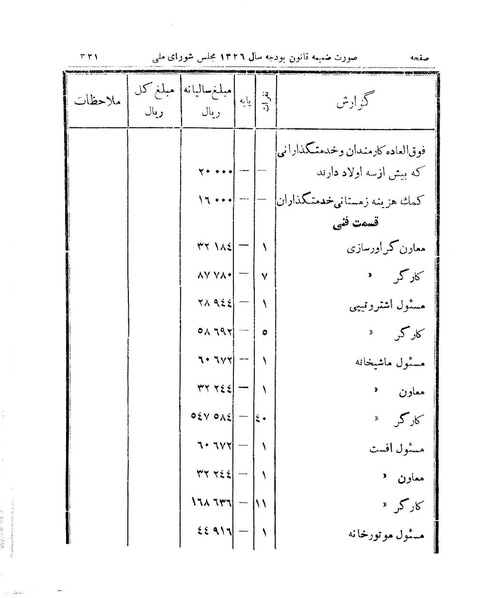 صفحه صورت ضمیمه قانون بودجه سال ۱۳۲۶ مجلس شورای ملی ۳۲۱
گزارش نفرات پایه مبلغ سالیانه ریال مبلغ کل ریال ملاحظات
فوق‌العاده کارمندان و خدمتگذارانی
که بیش از سه اولاد دارند — — ۲۰ ۰۰۰
کمك هزینه زمستانی خدمتگذاران — — ۱۶ ۰۰۰
قسمت فنی
معاون گراورسازی ۱ — ۳۲ ۱۸٤
کارگر » ۷ — ۸۷ ۷۸۰
مسئول اشتروتیپی ۱ — ۲۸ ۹٤٤
کارگر » ٥ — ٥۸ ٦۹۲
مسئول ماشیخانه ۱ — ٦۰ ٦۷۲
معاون » ۱ — ۳۲ ۲٤٤
کارگر » ٤۰ — ٥٤۷ ٥۸٤
مسئول افست ۱ — ٦۰ ٦۷۲
معاون » ۱ — ۳۲ ۲٤٤
کارگر » ۱۱ — ۱٦۸ ٦۳٦
مسئول موتورخانه ۱ — ٤٤ ۹۱٦